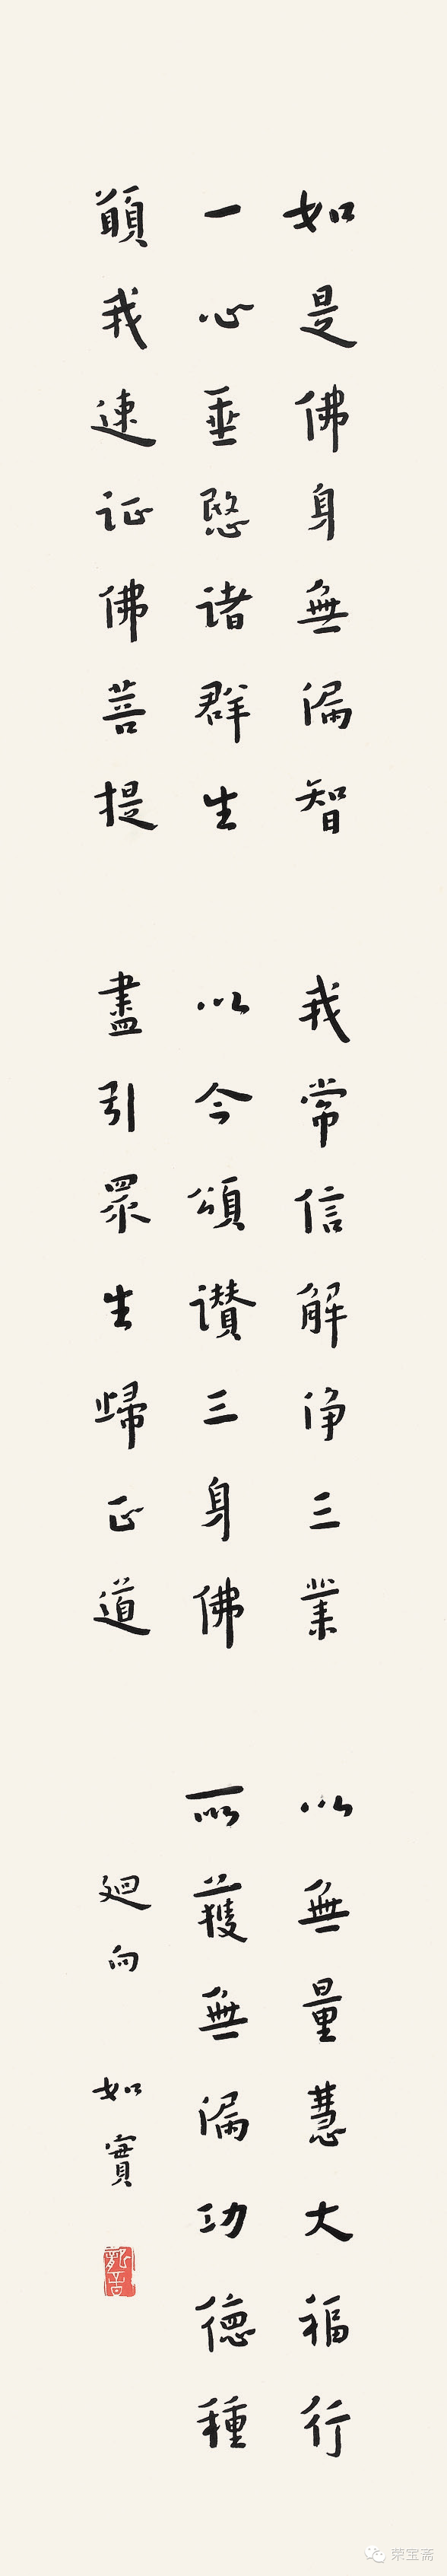 如是佛身無漏智 我常信解净三業 以無量慧大福行
一心垂愍诸群生 以今頌讃三身佛 所獲無漏功德種
願我速证佛菩提 盡引眾生歸正道 廻向 如實
荣宝斋